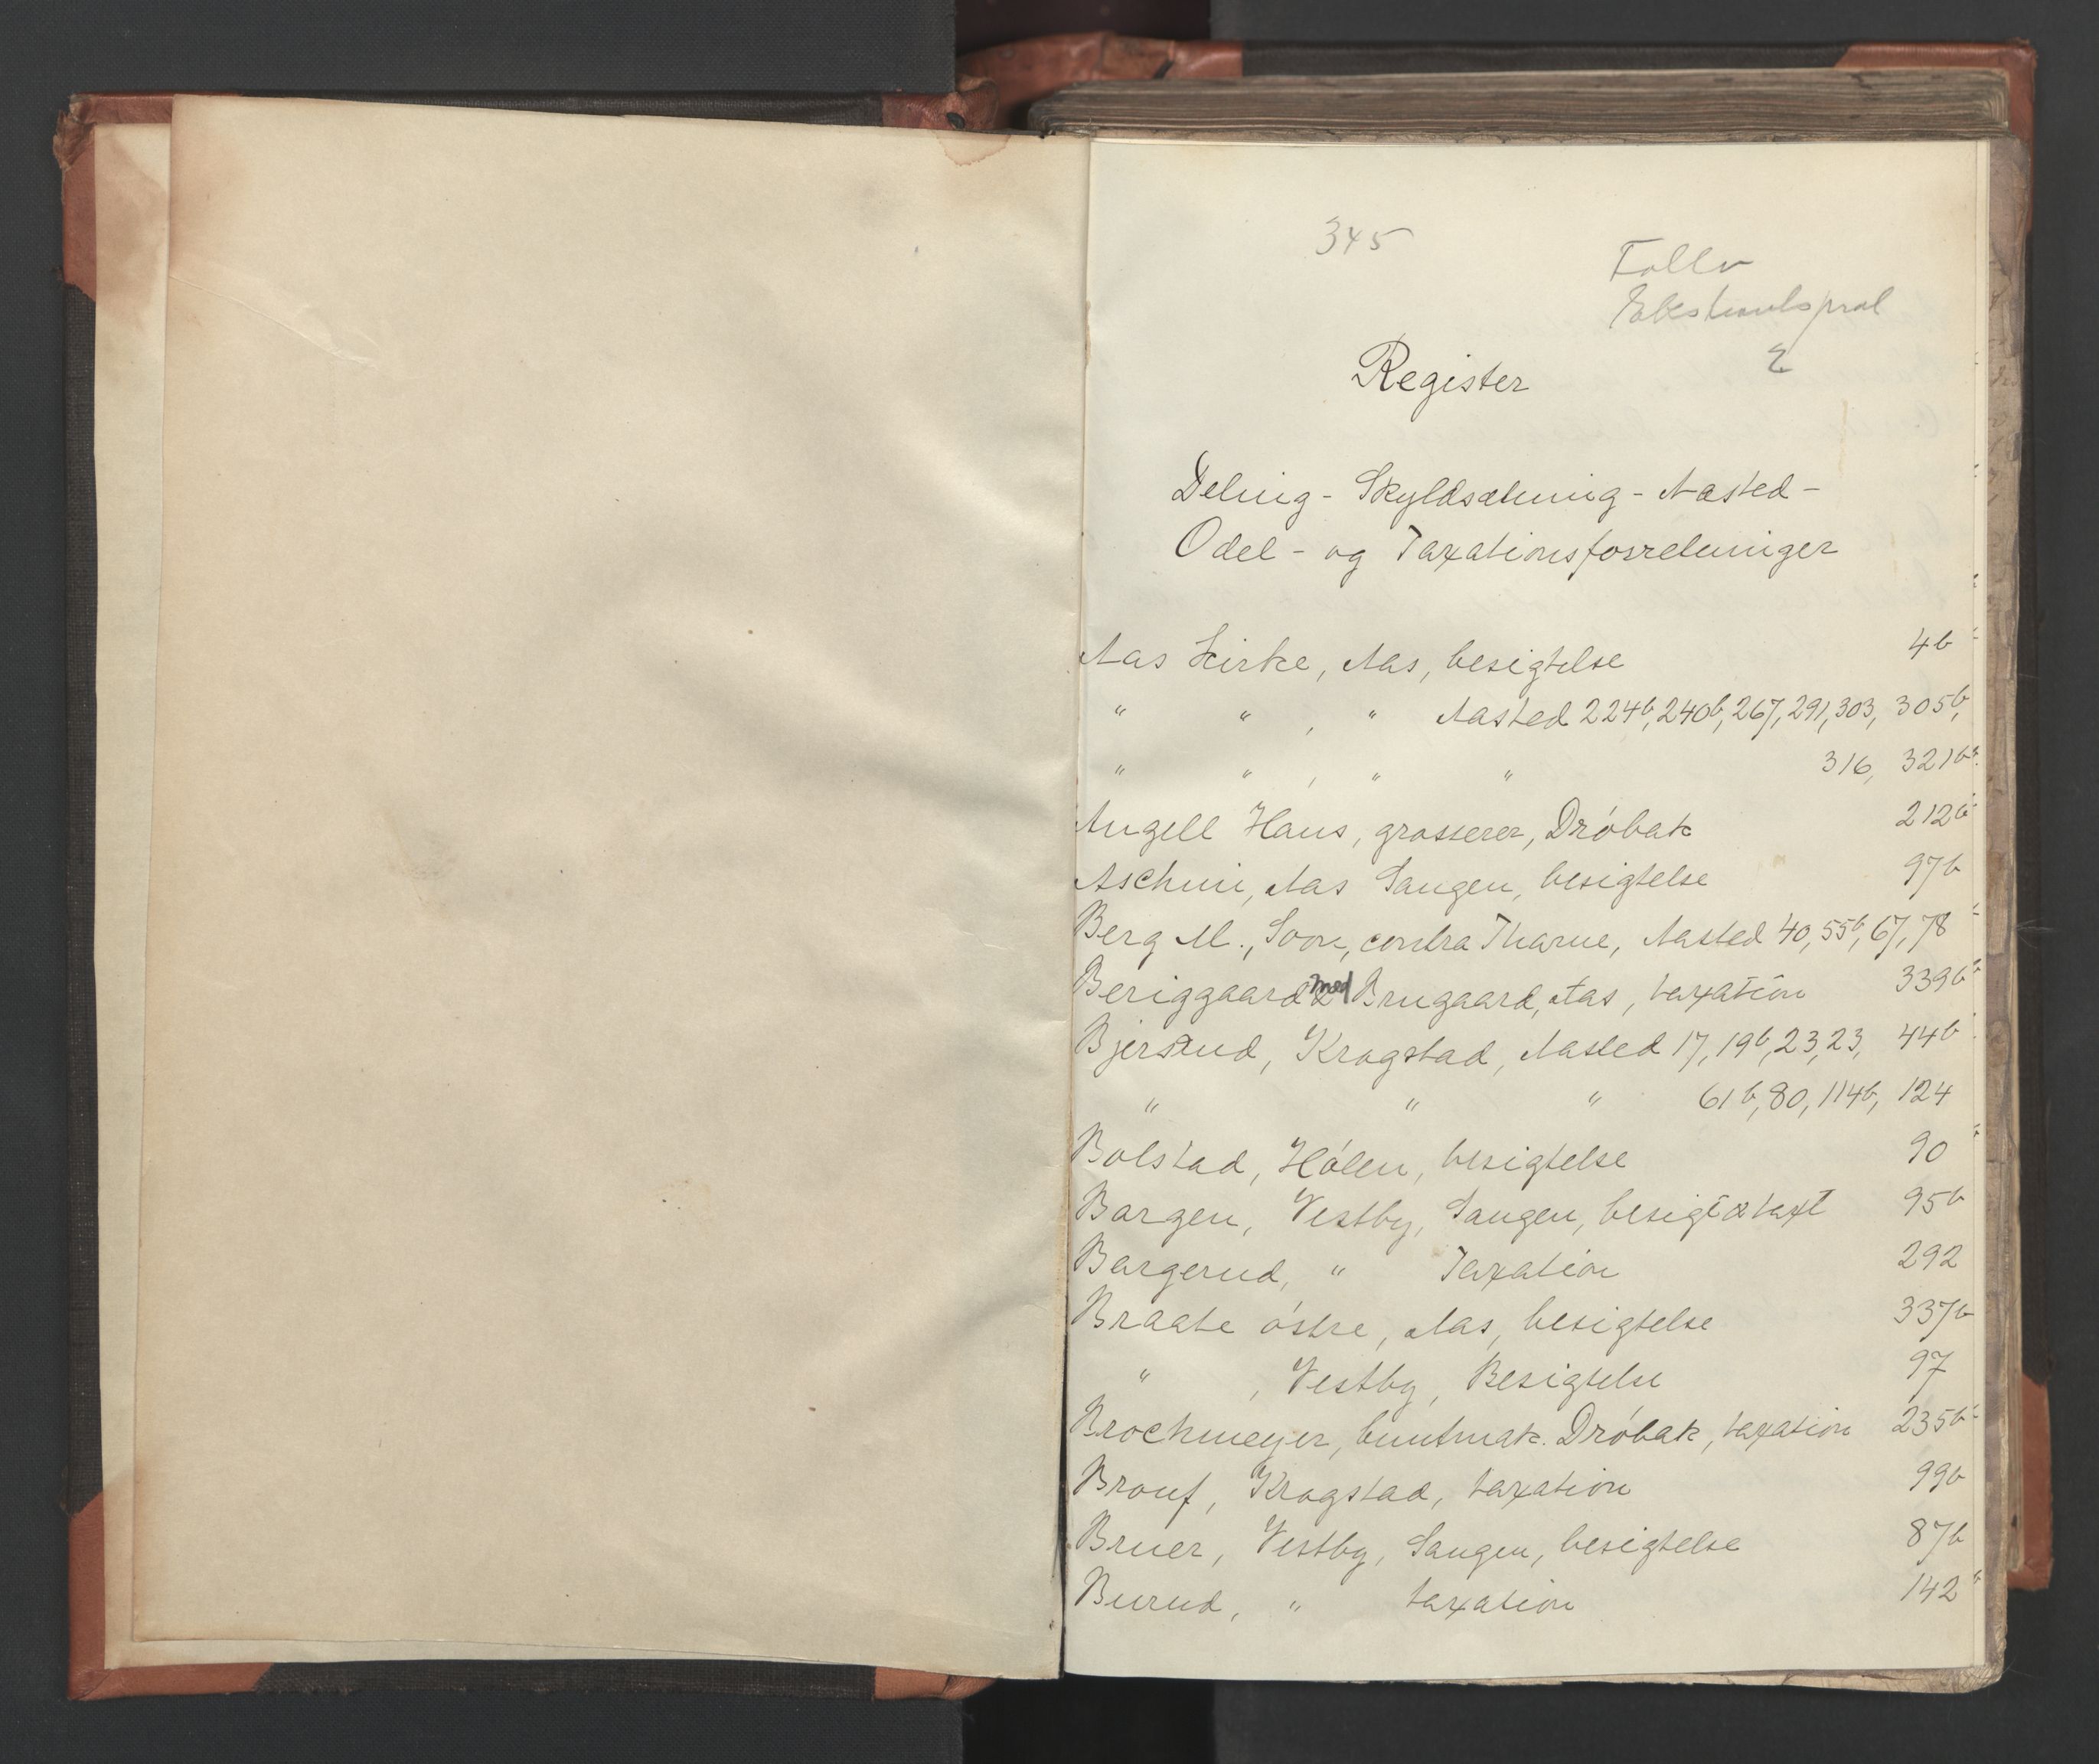 345
Follo
Ekstraretsprot
2
Register
Deling - Skyldsætning - Aasted -
Odel - og Taxationsforretninger
Aas Kirke, Aas, besigtelse 4b
" " , " Aasted 224b, 240b, 267, 291, 303, 305b,
" " , " " 316, 321b
Angell Hans, grosserer, Dróbak 212b
Aschim, Aas Sangen, besigtelse 97b
Berg M., Soon, contra Tharne, Aasted 40, 55b, 67, 78
Beriggaard med Brugaard, Aas, taxation 339b
Bjerstud, Krogstad, Aasted 17, 19b, 23, 23, 44b
" " " 61b, 80, 114b, 124
Bolstad, Hólen, besigtelse 90
Borgen, Vestby, Sangen, besigt & taxt 95b
Borgerud, " Taxation 292
Braate óstre, Aas, besigtelse 337b
" , Vestby, Besigtelse 97
Brochmeyer, buntmak. Dróbak, taxation 235b
Brouf, Krogstad, taxation 99b
Bruer, Vestby, Sangen, besigtelse 87b
Burud, " taxation 142